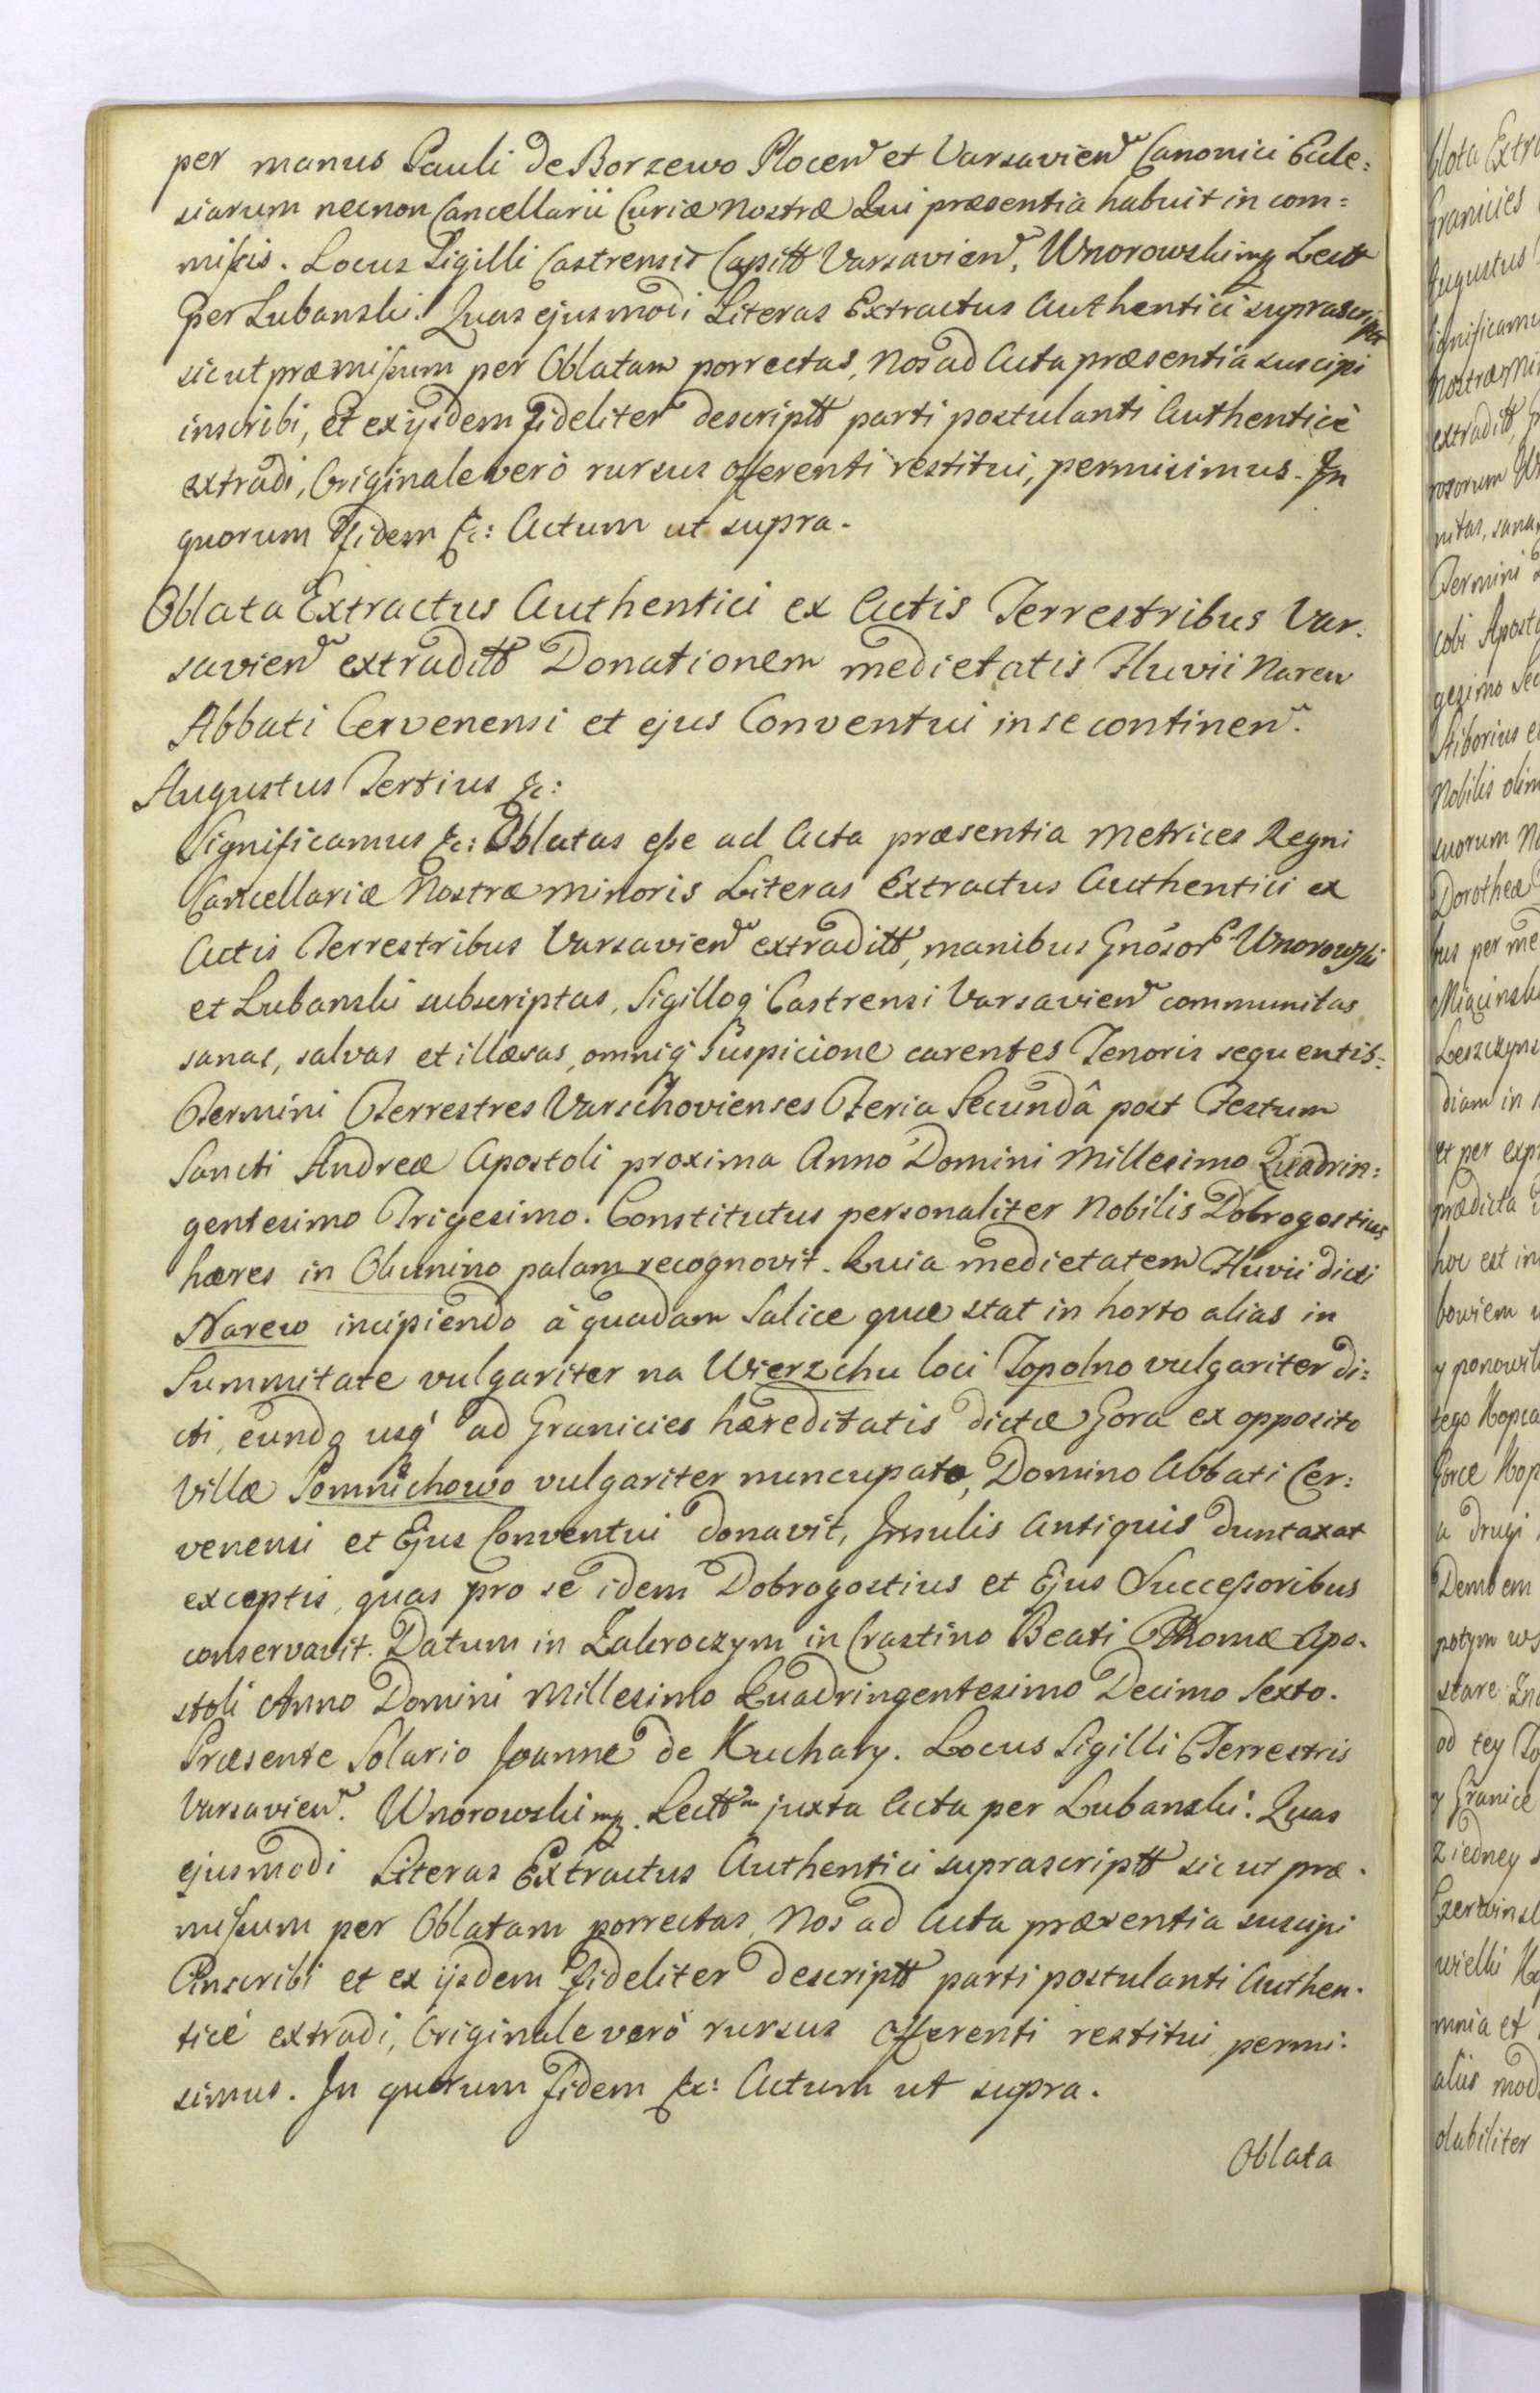 per manus Pauli de Borzewo Plocen et Varsavien Canonici Eccle:
siarum necnon Cancellarii Curiæ Nostræ Qui præsentia habuit in com=
missis. Locus Sigilli Castrensis Capitt Varsavien, Unorowski mp Lectt
per Lubanski. Quas ejusmodi Literas Extractus Authentici suprascriptt
sicut præmissum per Oblatam porrectas, Nos ad Acta præsentia suscipi
inscribi, et ex ijsdem fideliter descriptt parti postulanti Authenticè
extradi, Originale verò rursus offerenti restitui, permisimus. In
quorum fidem &c: Actum ut supra.
Oblata Extractus Authentici ex Actis Terrestribus Var.
savien extraditt Donationem medietatis Fluvii Narew
Abbati Cervenensi et ejus Conventui in se continen.
Augustus Tertius &c:
Significamus &c: Oblatas esse ad Acta præsentia Metrices Regni
Cancellariæ Nostræ Minoris Literas Extractus Authentici ex
Actis Terrestribus Varsavien extraditt, manibus Gnosor Unorowski
et Lubanski subscriptas, Sigilloq Castrensi Varsavien communitas
sanas, salvas et illæsas, omniq Suspicione carentes Tenoris sequentis:
Termini Terrestres Varschovienses Feria Secundâ post Festum
Sancti Andreæ Apostoli proxima Anno Domini Millesimo Quadrin:
gentesimo Trigesimo. Constitutus personaliter Nobilis Dobrogostius
hæres in Olunino palam recognovit. Quia medietatem Fluvii dicti
Narew incipiendo à quadam Salice quæ stat in horto alias in
Summitate vulgariter na Wierzchu loci Topolno vulgariter di:
cti, eundo usq ad Granicies hæreditatis dictæ Gora ex opposito
Villæ Pomnichowo vulgariter nuncupatæ, Domino Abbati Cer:
venensi et Ejus Conventui donavit, Insulis Antiquis duntaxat
exceptis, quas pro se idem Dobrogostius et Ejus Successoribus
conservavit. Datum in Zakroczym in Crastino Beati Thomæ Apo.
stoli Anno Domini Millesimo Quadringentesimo Decimo Sexto.
Præsente Solario Joanne de Kuchary. Locus Sigilli Terrestris
Varsavien. Unorowski mp. Lectt juxta Acta per Lubanski. Quas
ejusmodi Literas Extractus Authentici suprascriptt sicut præ.
missum per Oblatam porrectas, Nos ad Acta præsentia suscipi
Inscribi et ex ijsdem fideliter descriptt parti postulanti Authen.
ticè extradi, Originale verò rursus offerenti restitui, permi.
simus. In quorum fidem &c: Actum ut supra.
Oblata